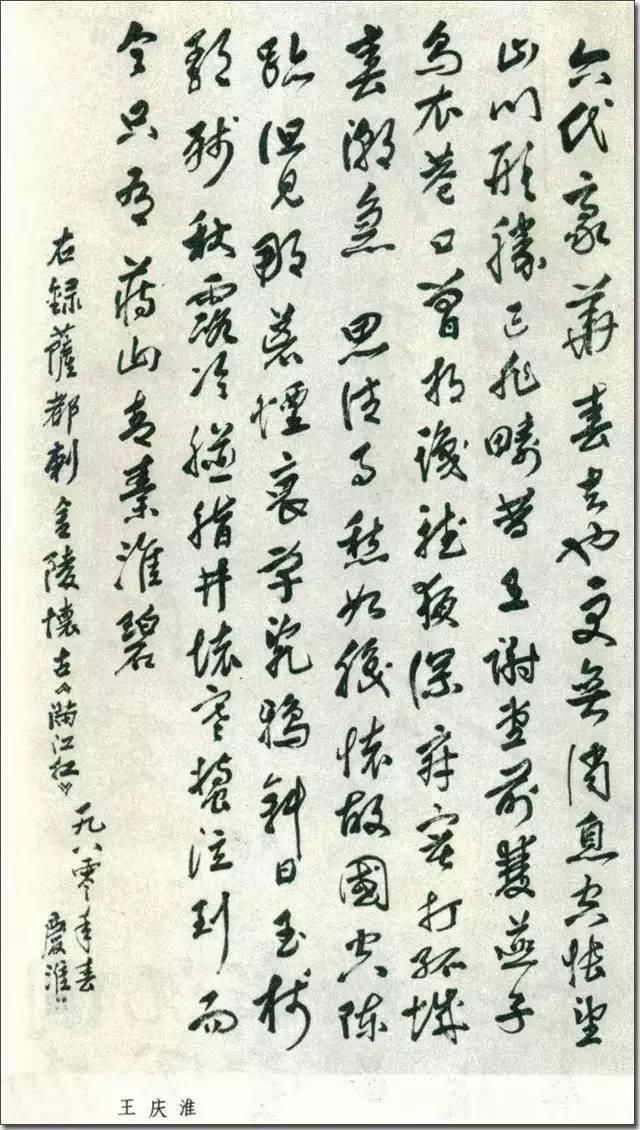 六代豪華春去也更無消息空悵望
山川形勝已非疇昔王謝堂前雙燕子
烏衣巷口曾相識聽夜深寂寞打孤城
春潮急 思往事愁如織懷故國空陳
跡但見那荒煙衰草亂鴉斜日玉樹
歌殘秋露冷臙脂井壞寒螿泣到而
今只有蔣山青秦淮碧
右録薩都刺金陵懷古《滿江紅》
一九八零年春
慶淮
王庆淮